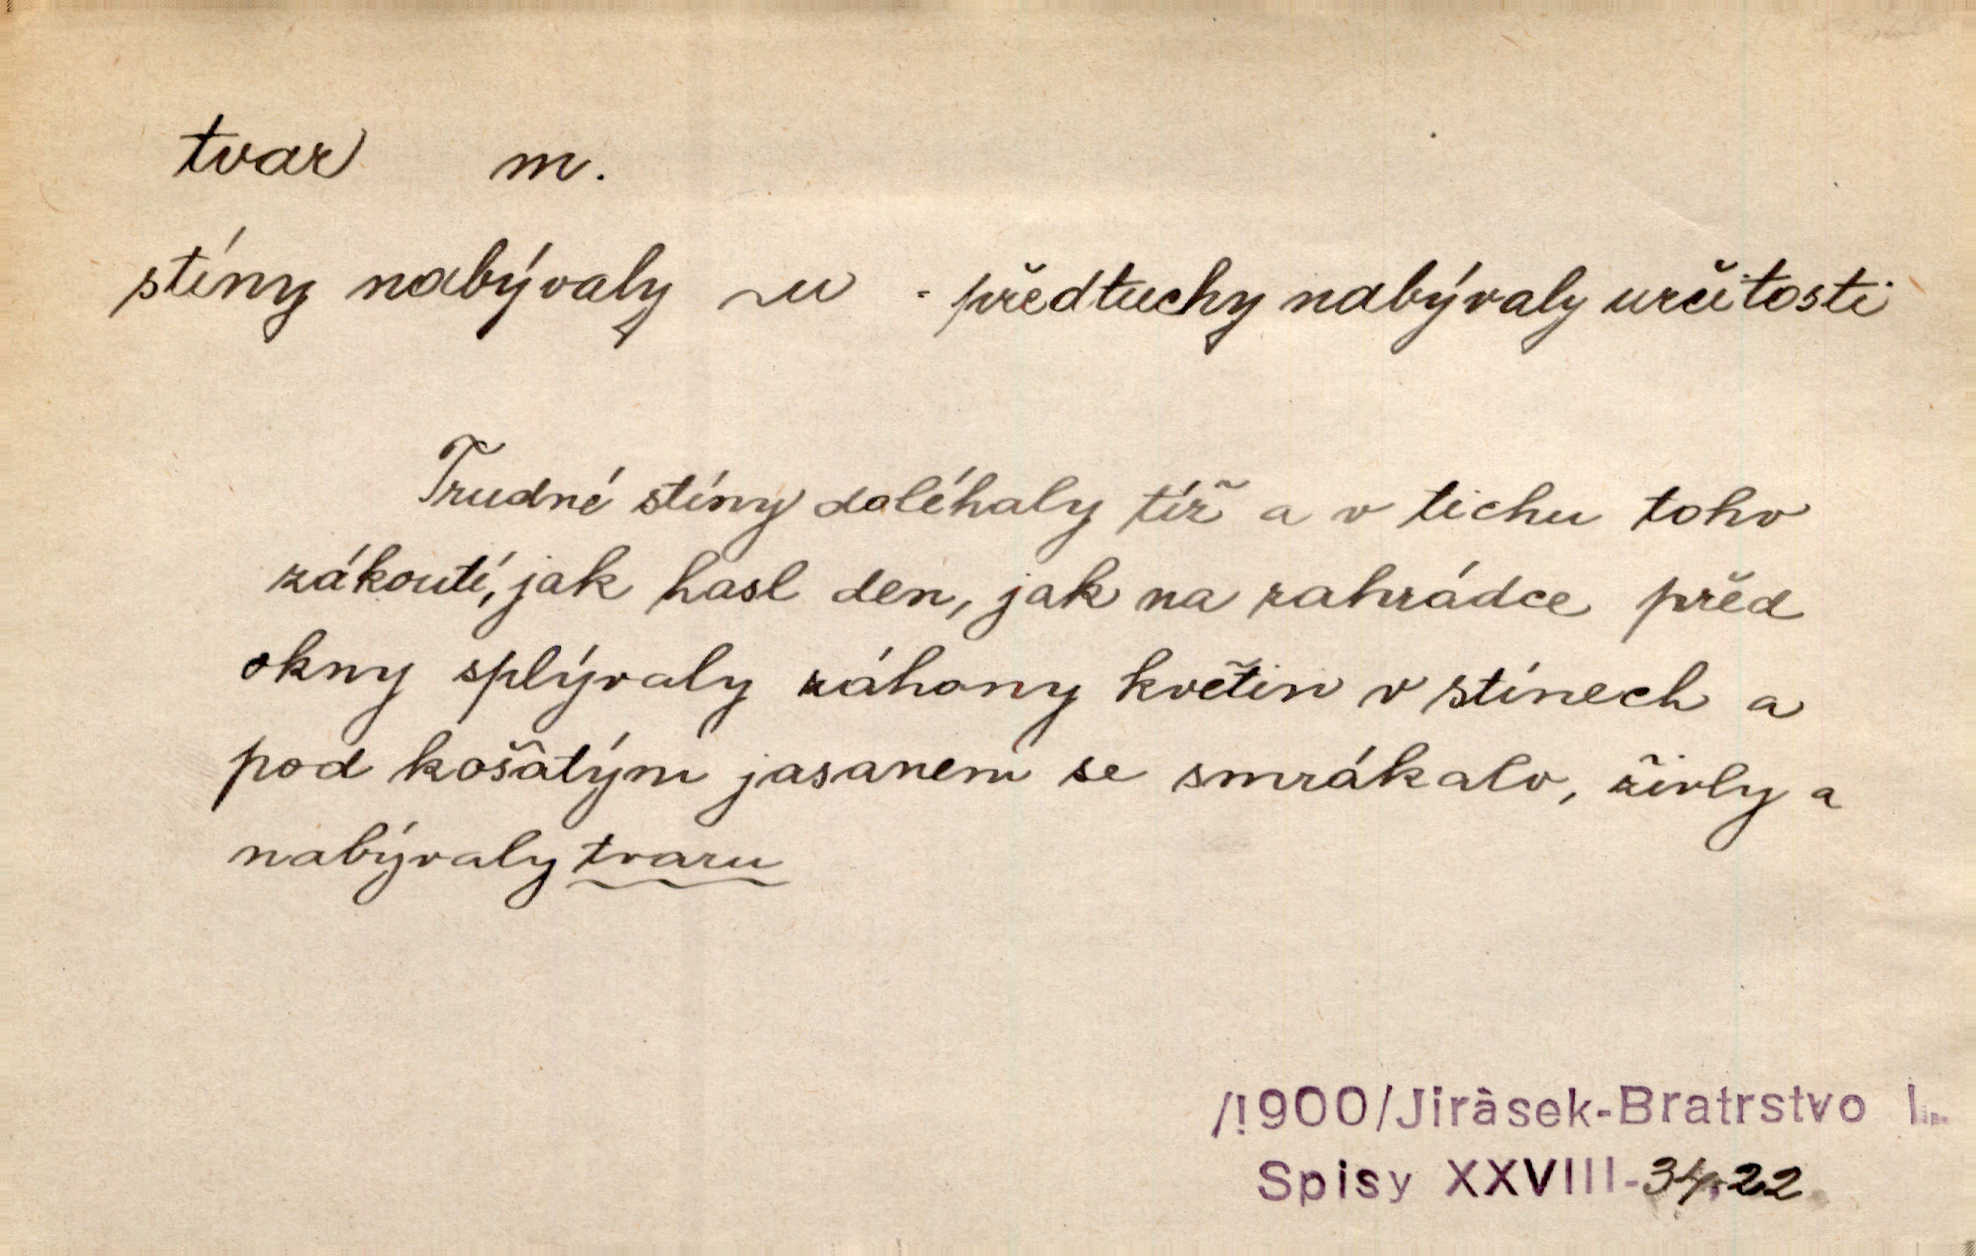 tvar m.
stíny nabývaly ~u - předtuchy nabývaly určitosti
Trudné stíny doléhaly tíž a v tichu toho
zákoutí, jak hasl den, jak na zahrádce před
okny splývaly záhony květin v stínech a
pod košatým jasanem se smrákalo, žívly a
nabývaly tvaru
/1900/Jirásek-Bratrstvo I.
Spisy XXVIII-34,22